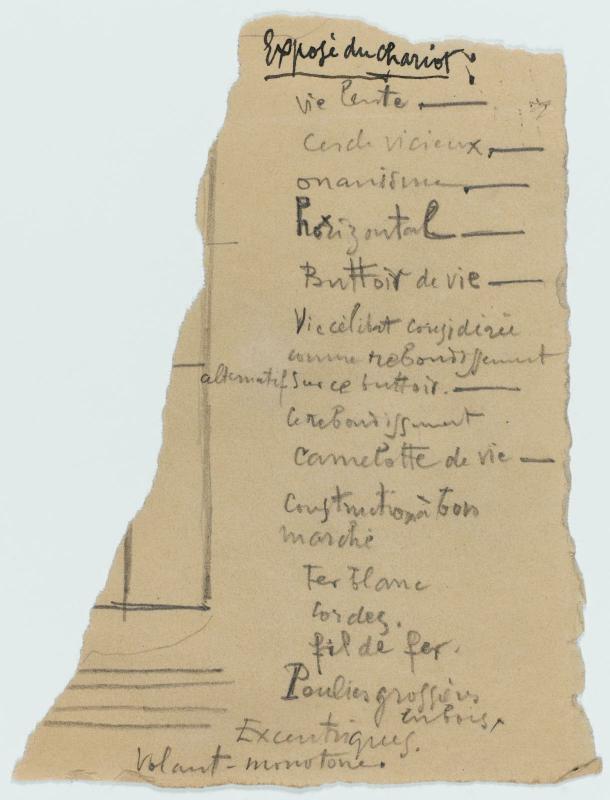 Exposé du Chariot :
vie lente. —
Cercle vicieux. —
onanisme. —
horizontal —
Buttoir de vie —
Vie célibat considérée
comme rebondissement
alternatif sur ce buttoir. —
Ce rebondissement
Camelotte de vie —
Construction à bon
marché
Fer blanc
Cordes.
fil de fer.
Poulies grossières
en bois.
Excentriques.
Volant - monotone.